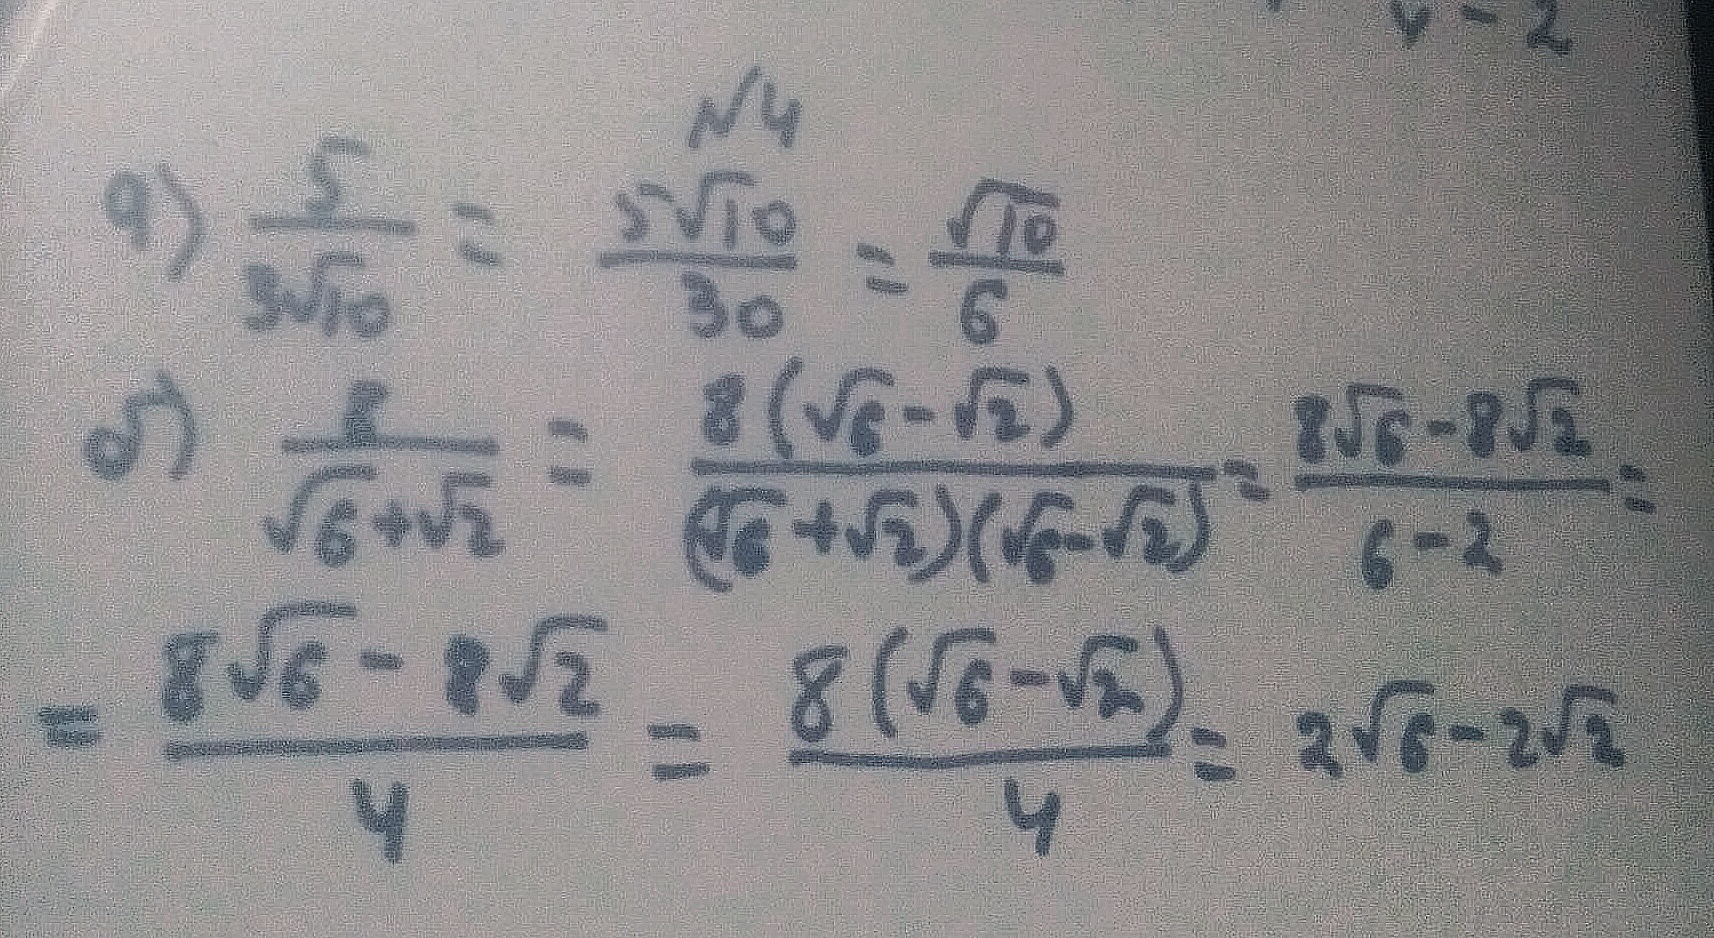 v - 2
№4
а) 5/(3√10) = 5√10/30 = √10/6
б) 8/(√6+√2) = 8(√6-√2)/((√6+√2)(√6-√2)) = (8√6-8√2)/(6-2) =
= (8√6-8√2)/4 = 8(√6-√2)/4 = 2√6-2√2